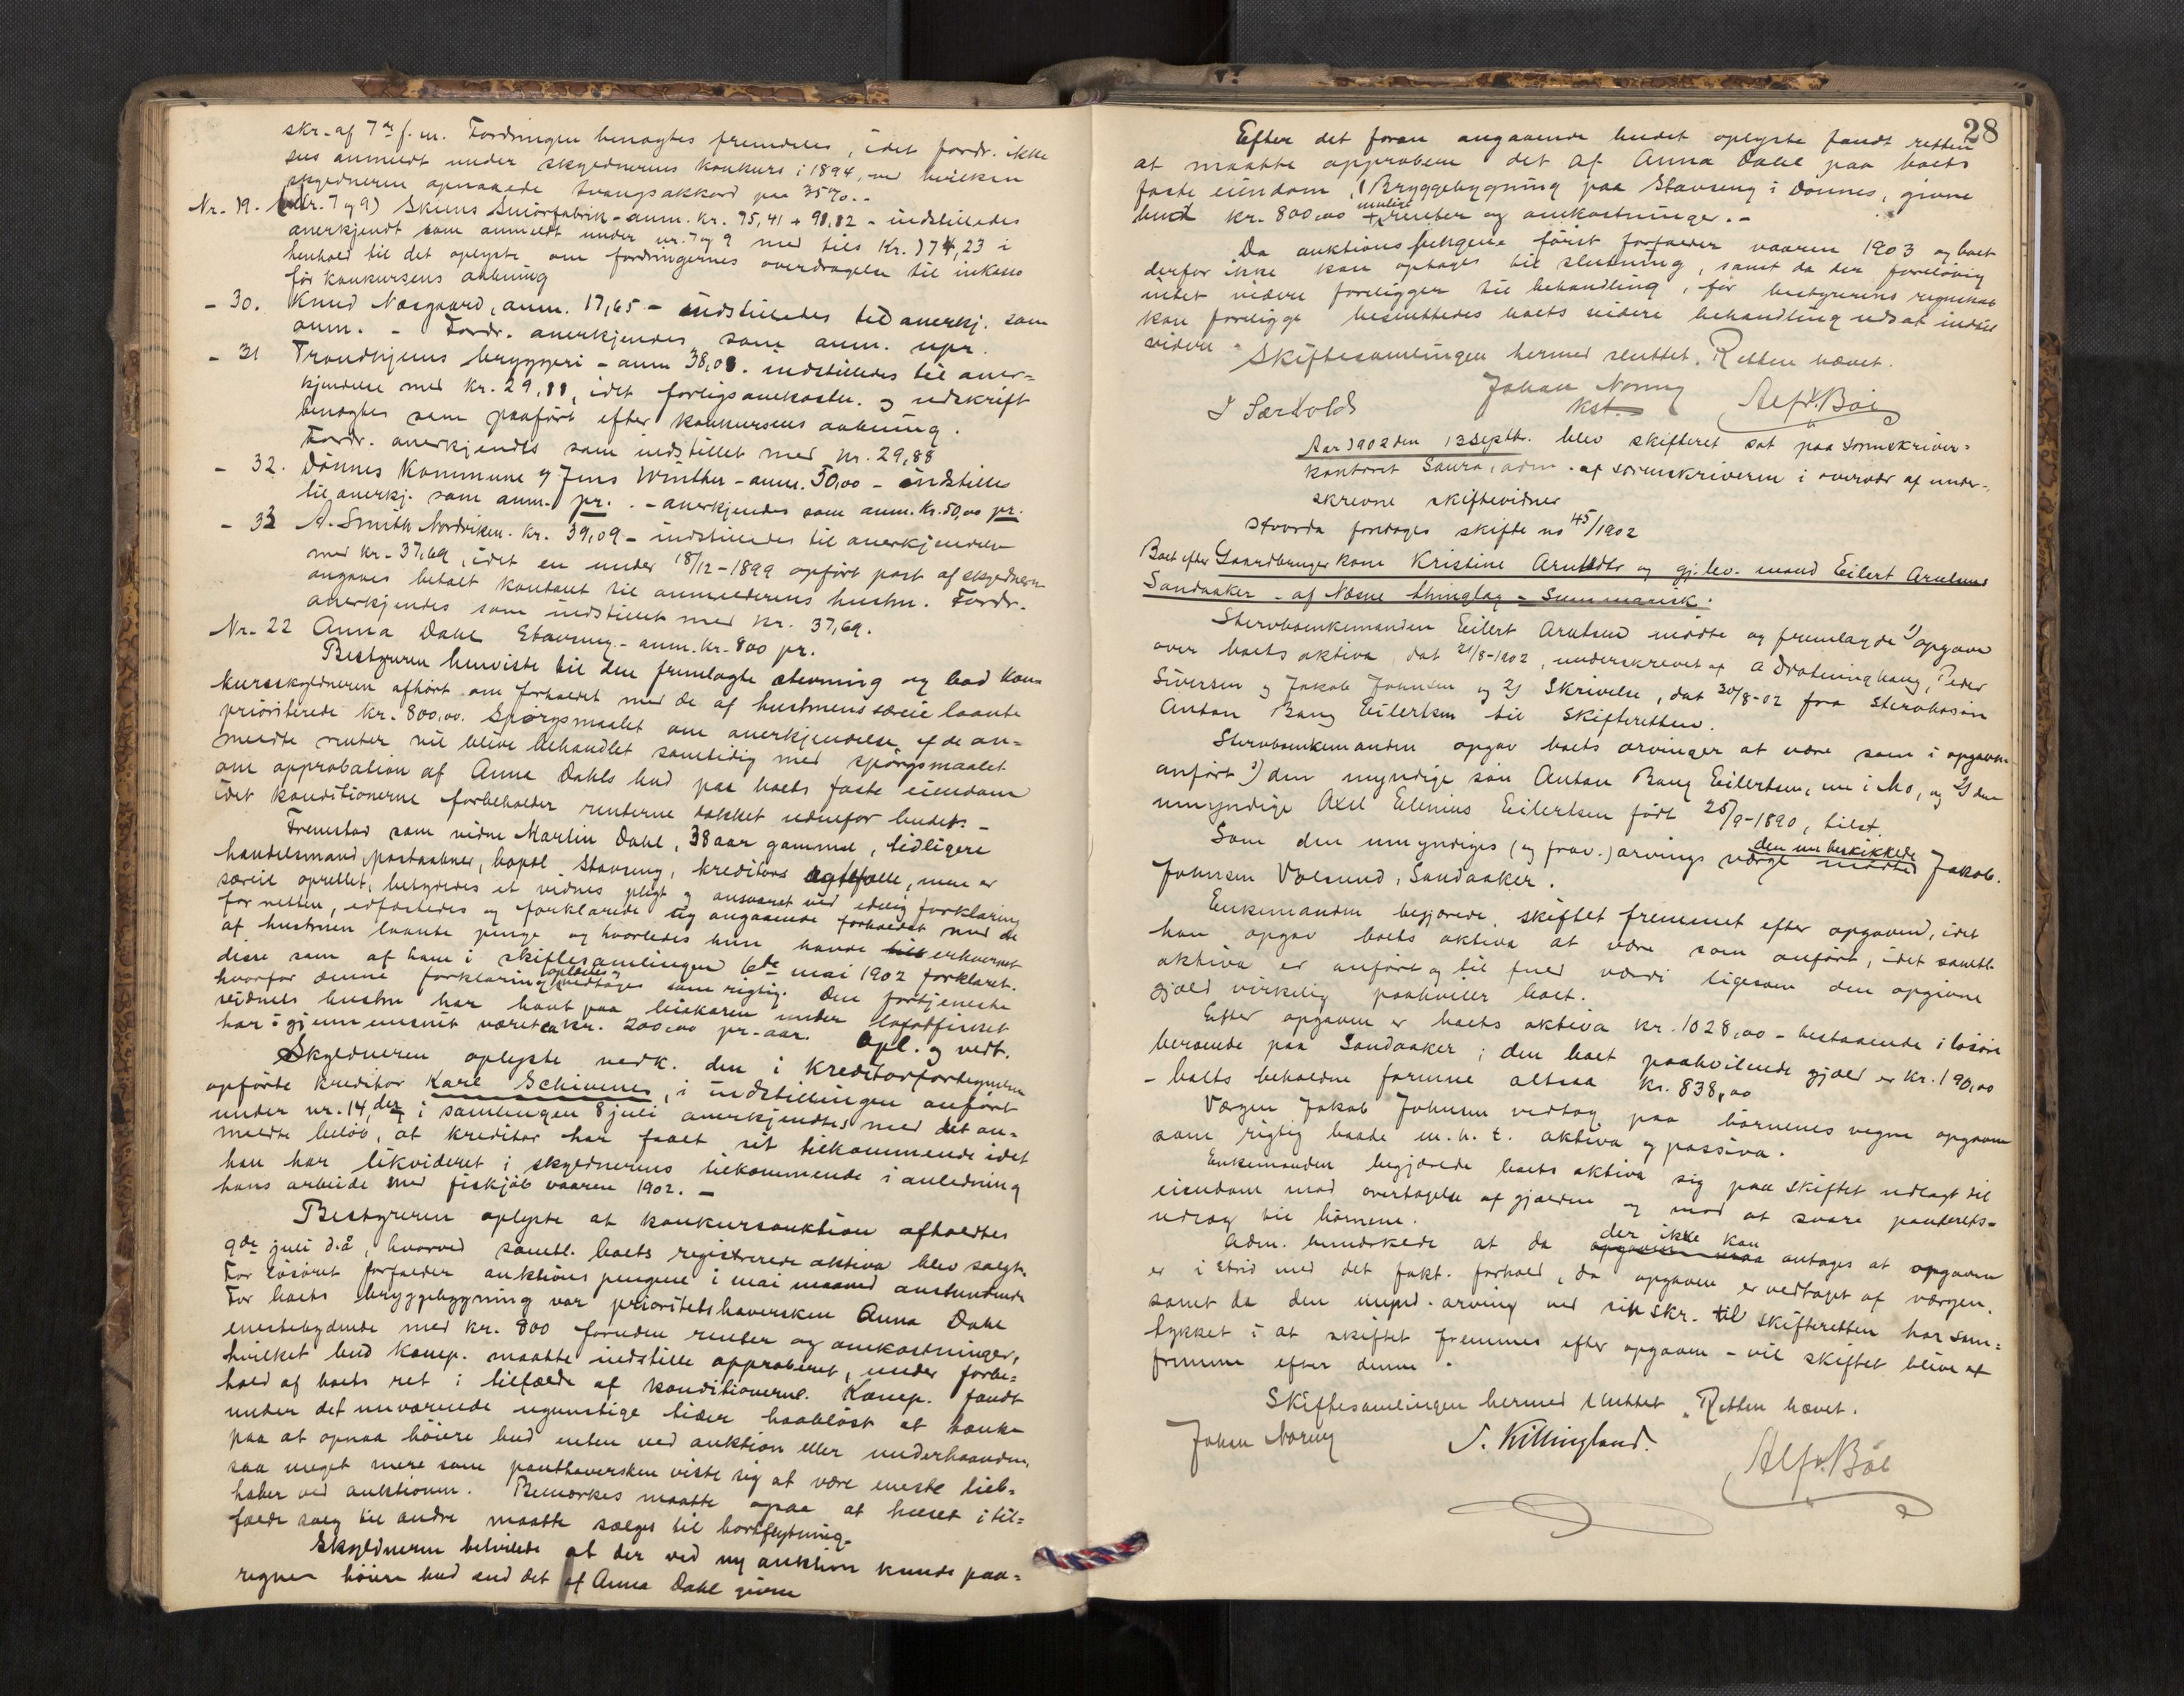 skr. af 7de f. m. Fordringen benegtes fremdeles, idet fordr. ikke
sees anmeldt under skyldnerens konkurs i 1894, ved hvilken
skyldneren opnaaede tvangsakkord paa 35%.-
Nr. 19. (Nr. 7 og 9) Skiens Smörfabrik - anm. kr. 75,41 + 98,82 - indstilledes
anerkjendt som anmeldt under nr. 7 og 9 med tils. kr. 174,23 i
henhold til det oplyste om fordringernes overdragelse til inkasso
för konkursens aabning
- 30. Knud Næsgaard, anm. 17,65 - indstilledes til anerkj. som
anm. - Fordr. anerkjendes som anm. upr.
- 31 Trondhjems bryggeri - anm 38,08. indstilledes til aner=
kjendelse med kr. 29,88, idet forligsomkostn. og udskrift
benegtes som paafört efter konkursens aabning.
Fordr. anerkjendes som indstillet med kr. 29,88
- 32. Dönnes Kommune og Jens Winther - anm. 50,00 - indstilles
til anerkj. som anm. pr. - anerkjendes som anm. kr. 50,00 pr.
- 33 A. Smith Nordviken. kr. 39,09 - indstilledes til anerkjendelse
med kr. 37,69, idet en under 18/12-1899 opfört post af skyldneren
angaves betalt kontant til anmelderens hustru. Fordr.
anerkjendes som indstillet med kr. 37,69.
Nr. 22 Anna Dahl Stavseng - anm. kr. 800 pr.
Bestyreren henviste til den fremlagte stevning og bad kon=
kursskyldneren afhört om forholdet med de af hustruens særeie laante
prioriterede kr. 800,00. Spörgsmaalet om anerkjendelse af de an=
meldte renter vil blive behandlet samtidig med spörgsmaalet
om approbation af Anna Dahls bud paa boets faste eiendom
idet konditionerne forbeholder renterne dækket udenfor budets -
Fremstod som vidne Martin Dahl, 38 aar gammel, tidligere
handelsmand, postaabner, bopæl Stavseng, kreditors ægtefælle, men er
særeie oprettet, betydedes et vidnes pligt og ansvaret ved edelig forklaring
for retten, edfæstedes og forklarede sig angaaende forholdet med de
af hustruen laante penge og hvorledes hun havde erhvervet
disse som af ham i skiftesamlingen 6te mai 1902 forklaret.
hvorfor denne forklaring oplæstes og vedtages som rigtig. Den fortjeneste
vidnets hustru har havt paa under lofotfisket
har i gjennemsnit været ca kr. 200,00 pr. aar. Opl. og vedt.
Skyldneren oplyste vedk. den i kreditorfortegnelsen
opförte kreditor Karl Schiønnes, i indstillingen anfört
under nr. 14, der i samlingen 8 juli anerkjendtes med det an=
meldte belöb, at kreditor har faaet sit tilkommende idet
han har likvideret i skyldnerens tilkommende i anledning
hans arbeide med fiskjöb vaaren 1902. -
Bestyreren oplyste at konkursauktion afholdtes
9de juli d. å., hvorved samtl. boets registrerede aktiva blev solgt.
For lösöret forfalder auktions pengene i mai maaned anstundende
For boets bryggebygning var prioritetshaversken Anna Dahl
enestebydende med kr. 800 foruden renter og omkostninger,
hvilket bud komp. maatte indstille approberet, under forbe=
hold af boets ret i tilfælde af konditionerne. Komp. fandt
under det nuværende ugunstige tider haablöst at tænke
paa at opnaa höiere bud enten ved auktion eller underhaanden,
saa meget mere som panthaversken viste sig at være eneste lieb=
haber ved auktionen. Bemærkes maatte ogsaa at huset i til=
fælde salg til andre maatte sælges til bortflytning.
Skyldneren betvilede at der ved ny auktion kunde paa=
regnes höiere bud end det af Anna Dahl givne
28
Efter det foran angaaende budet oplyste fandt retten
at maatte approbere det af Anna Dahl paa boets
faste eiendom, (Bryggebygning paa Stavseng i Dönnes, givne
bud kr. 800,00 + mulige renter og omkostninger. -
Da auktions pengene först forfalder vaaren 1903 og boet
derfor ikke kan optages til slutning, samt da der forelöbig
intet videre foreligger til behandling, för bestyrerens regnskab
kan foreligge besluttedes boets videre behandling udsat indtil
videre -
Skiftesamlingen hermed sluttet. Retten hævet.
Johan Norum
kst.
J Særvolds
Alfr. Böe
Aar 1902 den 12 septbr. blev skifteret sat paa sorenskriver=
kontoret Saura, adm. af sorenskriveren i overvær af under=
skrevne skiftevidner
Hvorda foretoges skifte no 45/1902
Boet efter Gaardbruger kone Kristine Arntsdtr og gj.lev. mand Eilert Arntsens
Sandaaker - af Næsne thinglag - Summarisk.
Stervboenkemanden Eilert Arntsen mödte og fremlagde 1) opgave
over boets aktiva, dat 21/8-1902, underskrevet af A Drotninghaug, Peder
Siversen og Jakob Johnsen og 2) Skrivelse, dat 30/8-02 fra stervbosön
Anton Bang Eilertsen til Skifteretten.
Stervboenkemanden opgav boets arvinger at være som i opgaven
anfört 1) den myndige sön Anton Bang Eilertsen, nu i Mo, og 2) den
umyndige Axel Edenius Eilertsen födt 25/9-1890, tilst.
Som den umyndiges (og frav.) arvings værge mödte den nu beskikkede Jakob
Johnsen Volsund, Sandaaker.
Enkemanden begjærede skiftet fremmet efter opgaven, idet
han opgav boets aktiva at være som anfört, idet samtl.
aktiva er anfört og til fuld værdi ligesom den opgivne
gjæld virkelig paahviler boet.
Efter opgaven er boets aktiva kr. 1028,00 - bestaaende i lösöre
beroende paa Sandaaker; den boet paahvilende gjæld er kr. 190,00
- boets beholdne formue altsaa kr. 838,00
Værgen Jakob Johnsen vedtog paa börnenes vegne opgaven
som rigtig baade m. h. t. aktiva og passiva.
Enkemanden begjærede boets aktiva sig paa skiftet udlagt til
eiendom mod overtagelse af gjælden og mod at svare panterets=
udlæg til börnene.
Adm. bemærkede at da der ikke kan antages at opgaven
er i strid med det fakt. forhold, da opgaven er vedtaget af værgen.
samt da den mynd. arving ved sin skr. til skifteretten har sam=
tykket i at skiftet fremmes efter opgaven - vil skiftet blive at
fremme efter denne.
Skiftesamlingen hermed sluttet. Retten hævet.
Johan Norum
S. Killingland.
Alfr. Böe